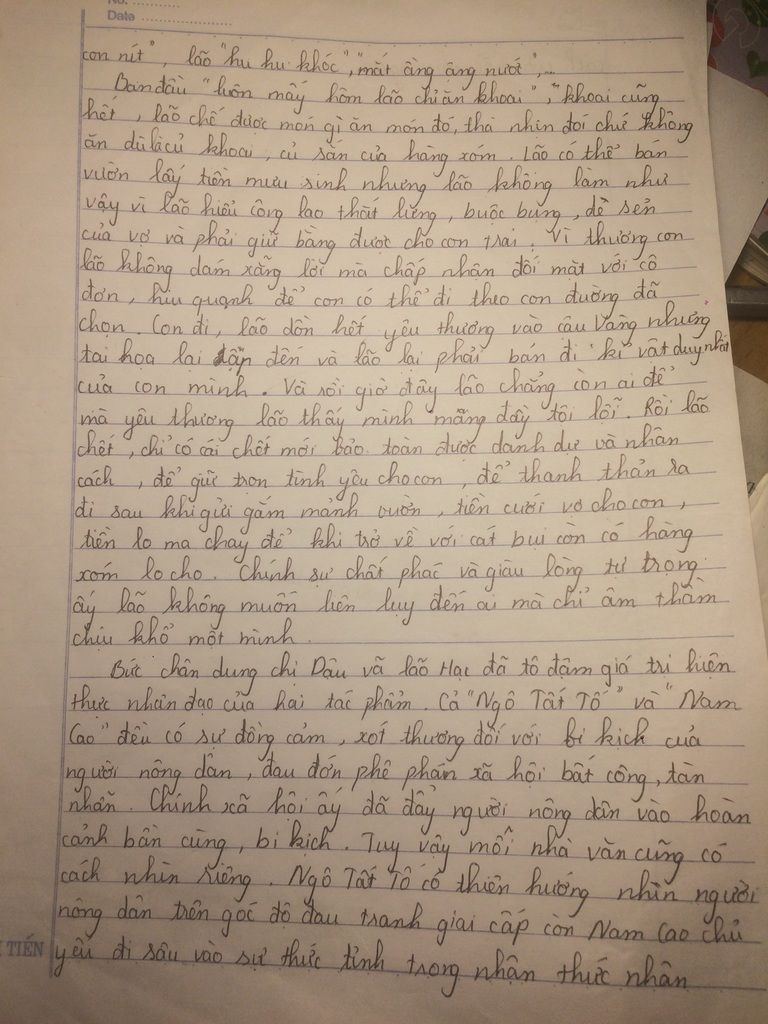 No. ............
Date .......................
con nít", lão "hu hu khóc", "mắt ầng ậng nước",...
Ban đầu "luôn mấy hôm lão chỉ ăn khoai", "khoai cũng
hết, lão chế được món gì ăn món đó, thà nhịn đói chứ không
ăn dù là củ khoai, củ sắn của hàng xóm. Lão có thể bán
vườn lấy tiền mưu sinh nhưng lão không làm như
vậy vì lão hiểu công lao thắt lưng, buộc bụng, dè sẻn
của vợ và phải giữ bằng được cho con trai. Vì thương con
lão không dám xẵng lời mà chấp nhận đối mặt với cô
đơn, hiu quạnh để con có thể đi theo con đường đã
chọn. Con đi, lão dồn hết yêu thương vào cậu Vàng nhưng
tai họa lại ập đến và lão lại phải bán đi "kỉ vật duy nhất
của con mình. Và rồi giờ đây lão chẳng còn ai để
mà yêu thương lão thấy mình mang đầy tội lỗi. Rồi lão
chết, chỉ có cái chết mới bảo toàn được danh dự và nhân
cách, để giữ trọn tình yêu cho con, để thanh thản ra
đi sau khi gửi gắm mảnh vườn, tiền cưới vợ cho con,
tiền lo ma chay để khi trở về với cát bụi còn có hàng
xóm lo cho. Chính sự chất phác và giàu lòng tự trọng
ấy lão không muốn liên lụy đến ai mà chỉ âm thầm
chịu khổ một mình.
Bức chân dung chị Dậu và lão Hạc đã tô đậm giá trị hiện
thực nhân đạo của hai tác phẩm. Cả "Ngô Tất Tố" và "Nam
Cao" đều có sự đồng cảm, xót thương đối với bi kịch của
người nông dân, đau đớn phê phán xã hội bất công, tàn
nhẫn. Chính xã hội ấy đã đẩy người nông dân vào hoàn
cảnh bần cùng, bi kịch. Tuy vậy mỗi nhà văn cũng có
cách nhìn riêng. Ngô Tất Tố có thiên hướng nhìn người
nông dân trên góc độ đấu tranh giai cấp còn Nam Cao chủ
yếu đi sâu vào sự thức tỉnh trong nhận thức nhân
TIẾN